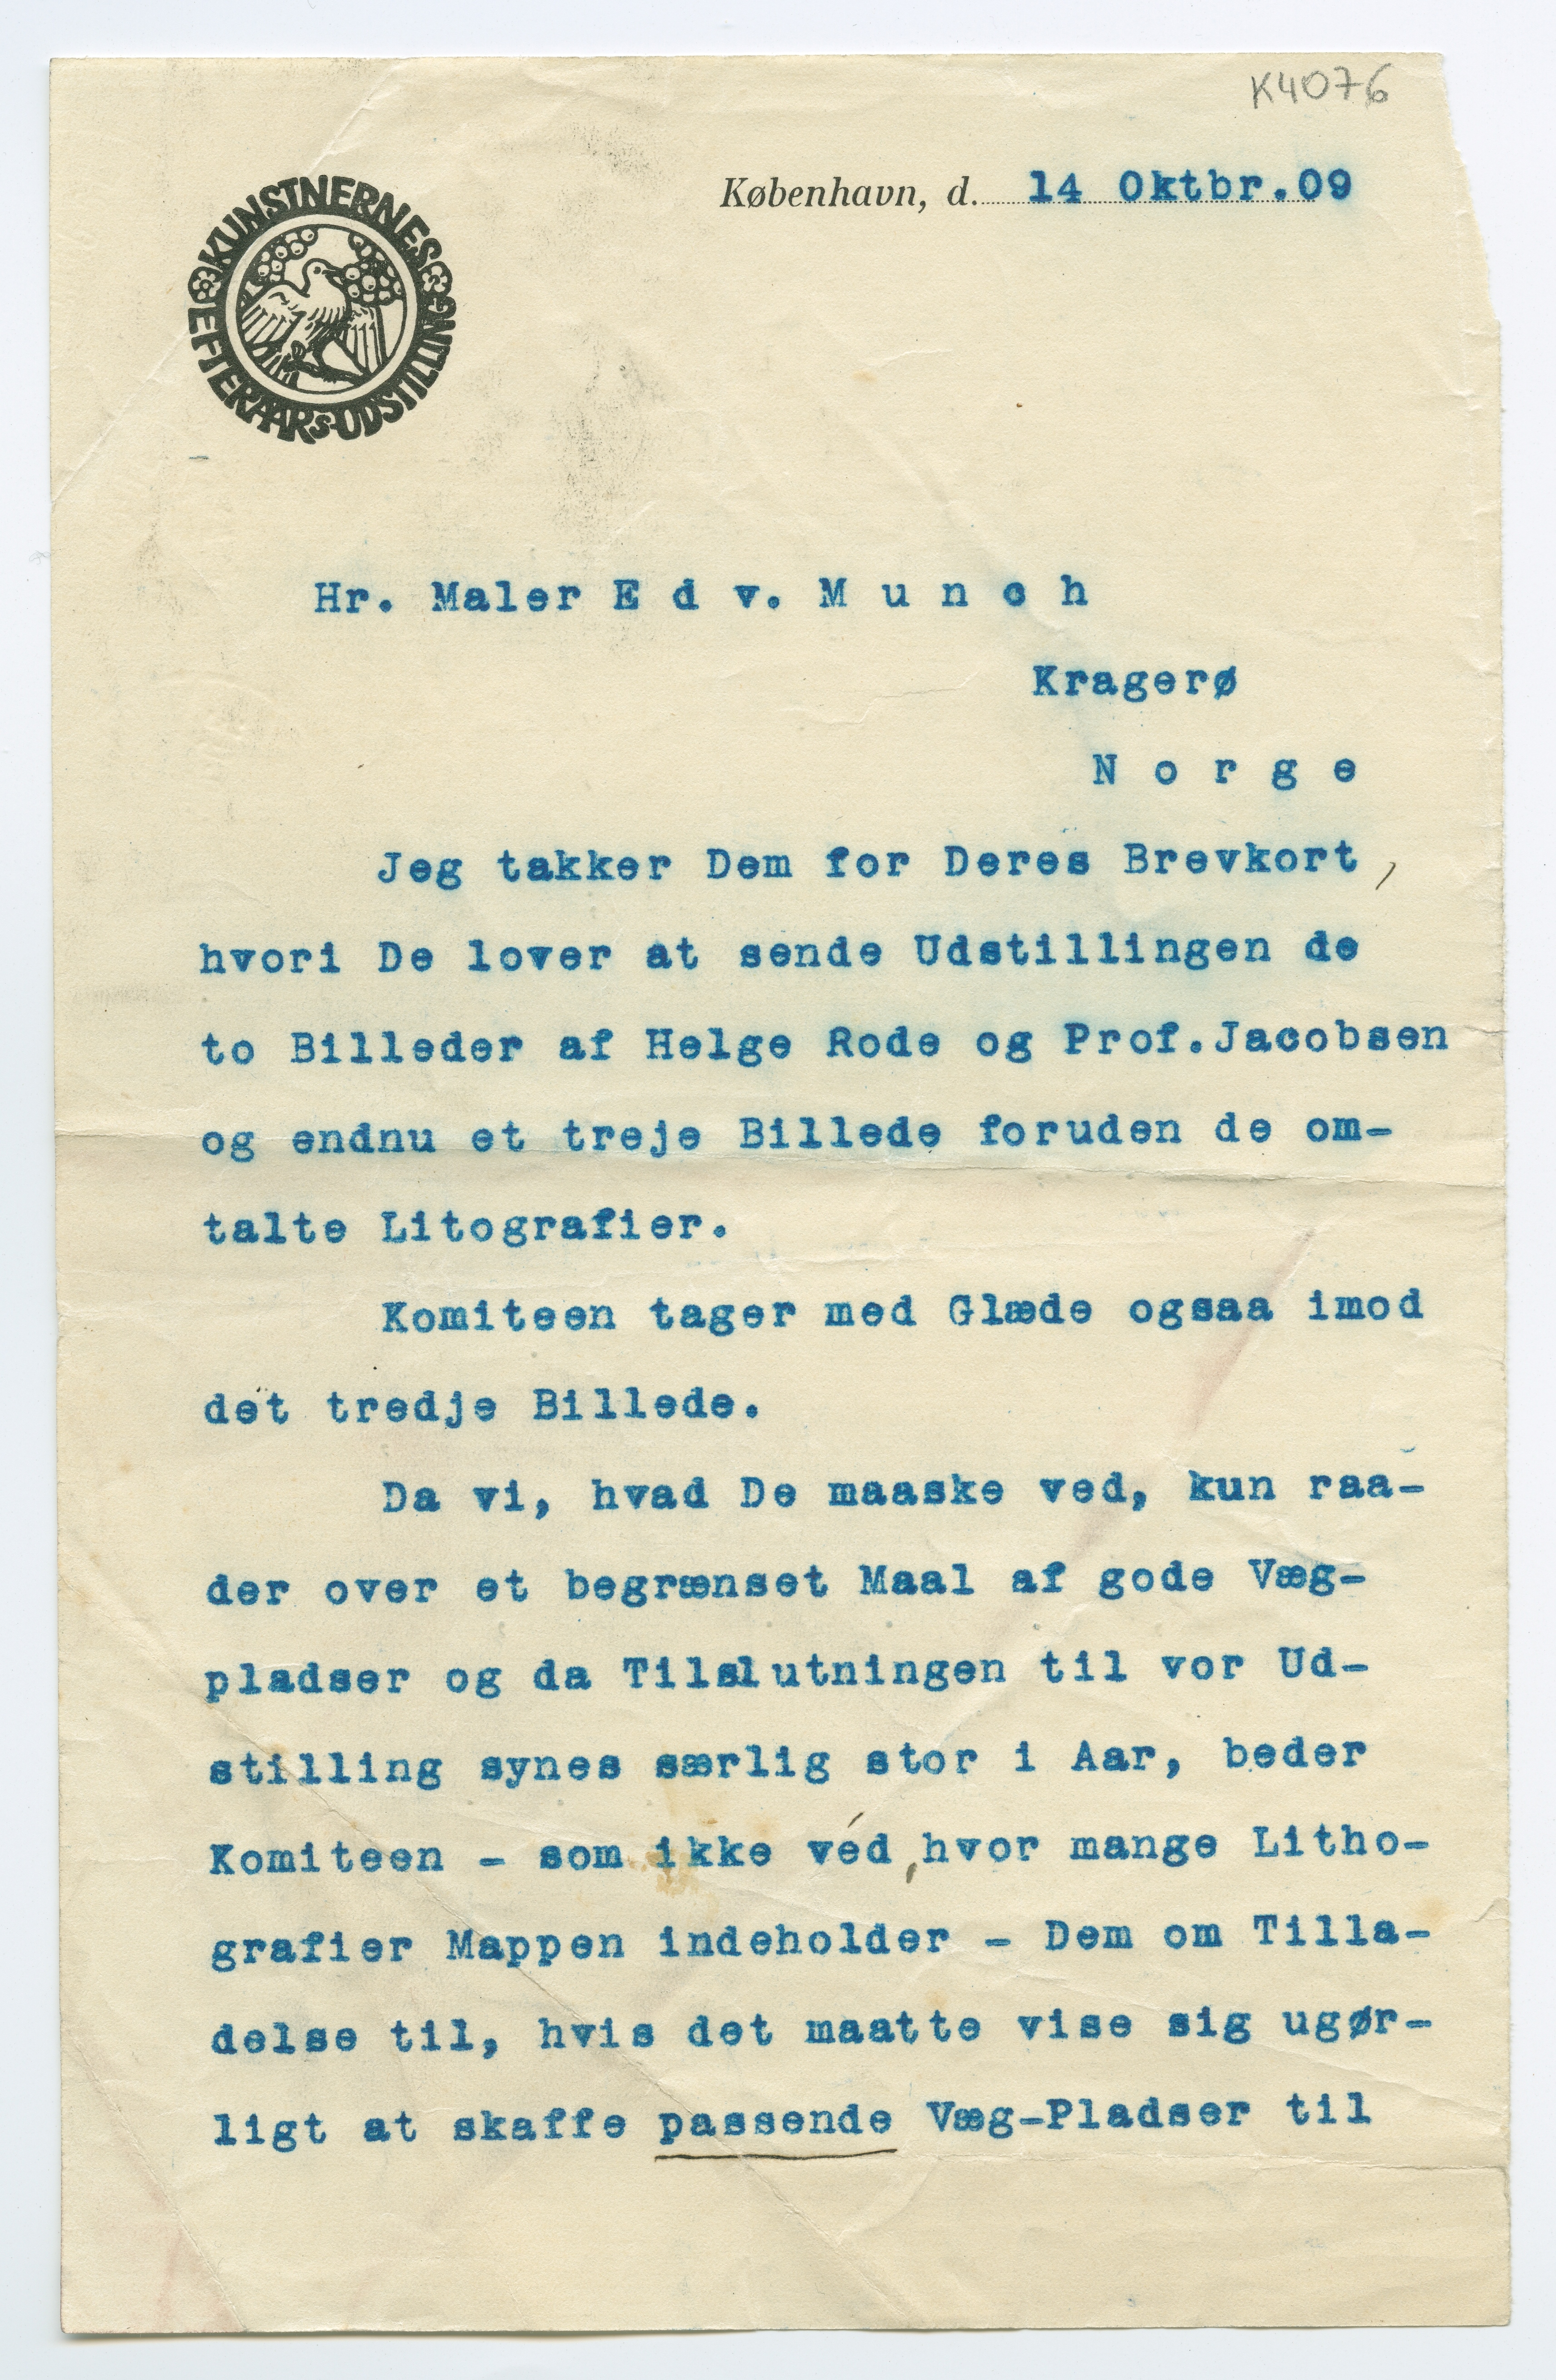 K4076
KUNSTNERNES
EFTERAARS-UDSTILLING
København, d. 14 Oktbr.09
Hr. Maler E d v. M u n c h
Kragerø
N o r g e
Jeg takker Dem for Deres Brevkort,
hvori De lover at sende Udstillingen de
to Billeder af Helge Rode og Prof.Jacobsen
og endnu et treje Billede foruden de om-
talte Litografier.
Komiteen tager med Glæde ogsaa imod
det tredje Billede.
Da vi, hvad De maaske ved, kun raa-
der over et begrænset Maal af gode Væg-
pladser og da Tilslutningen til vor Ud-
stilling synes særlig stor i Aar, beder
Komiteen - som ikke véd, hvor mange Litho-
grafier Mappen indeholder - Dem om Tilla-
delse til, hvis det maatte vise sig ugør-
ligt at skaffe passende Væg-Pladser til